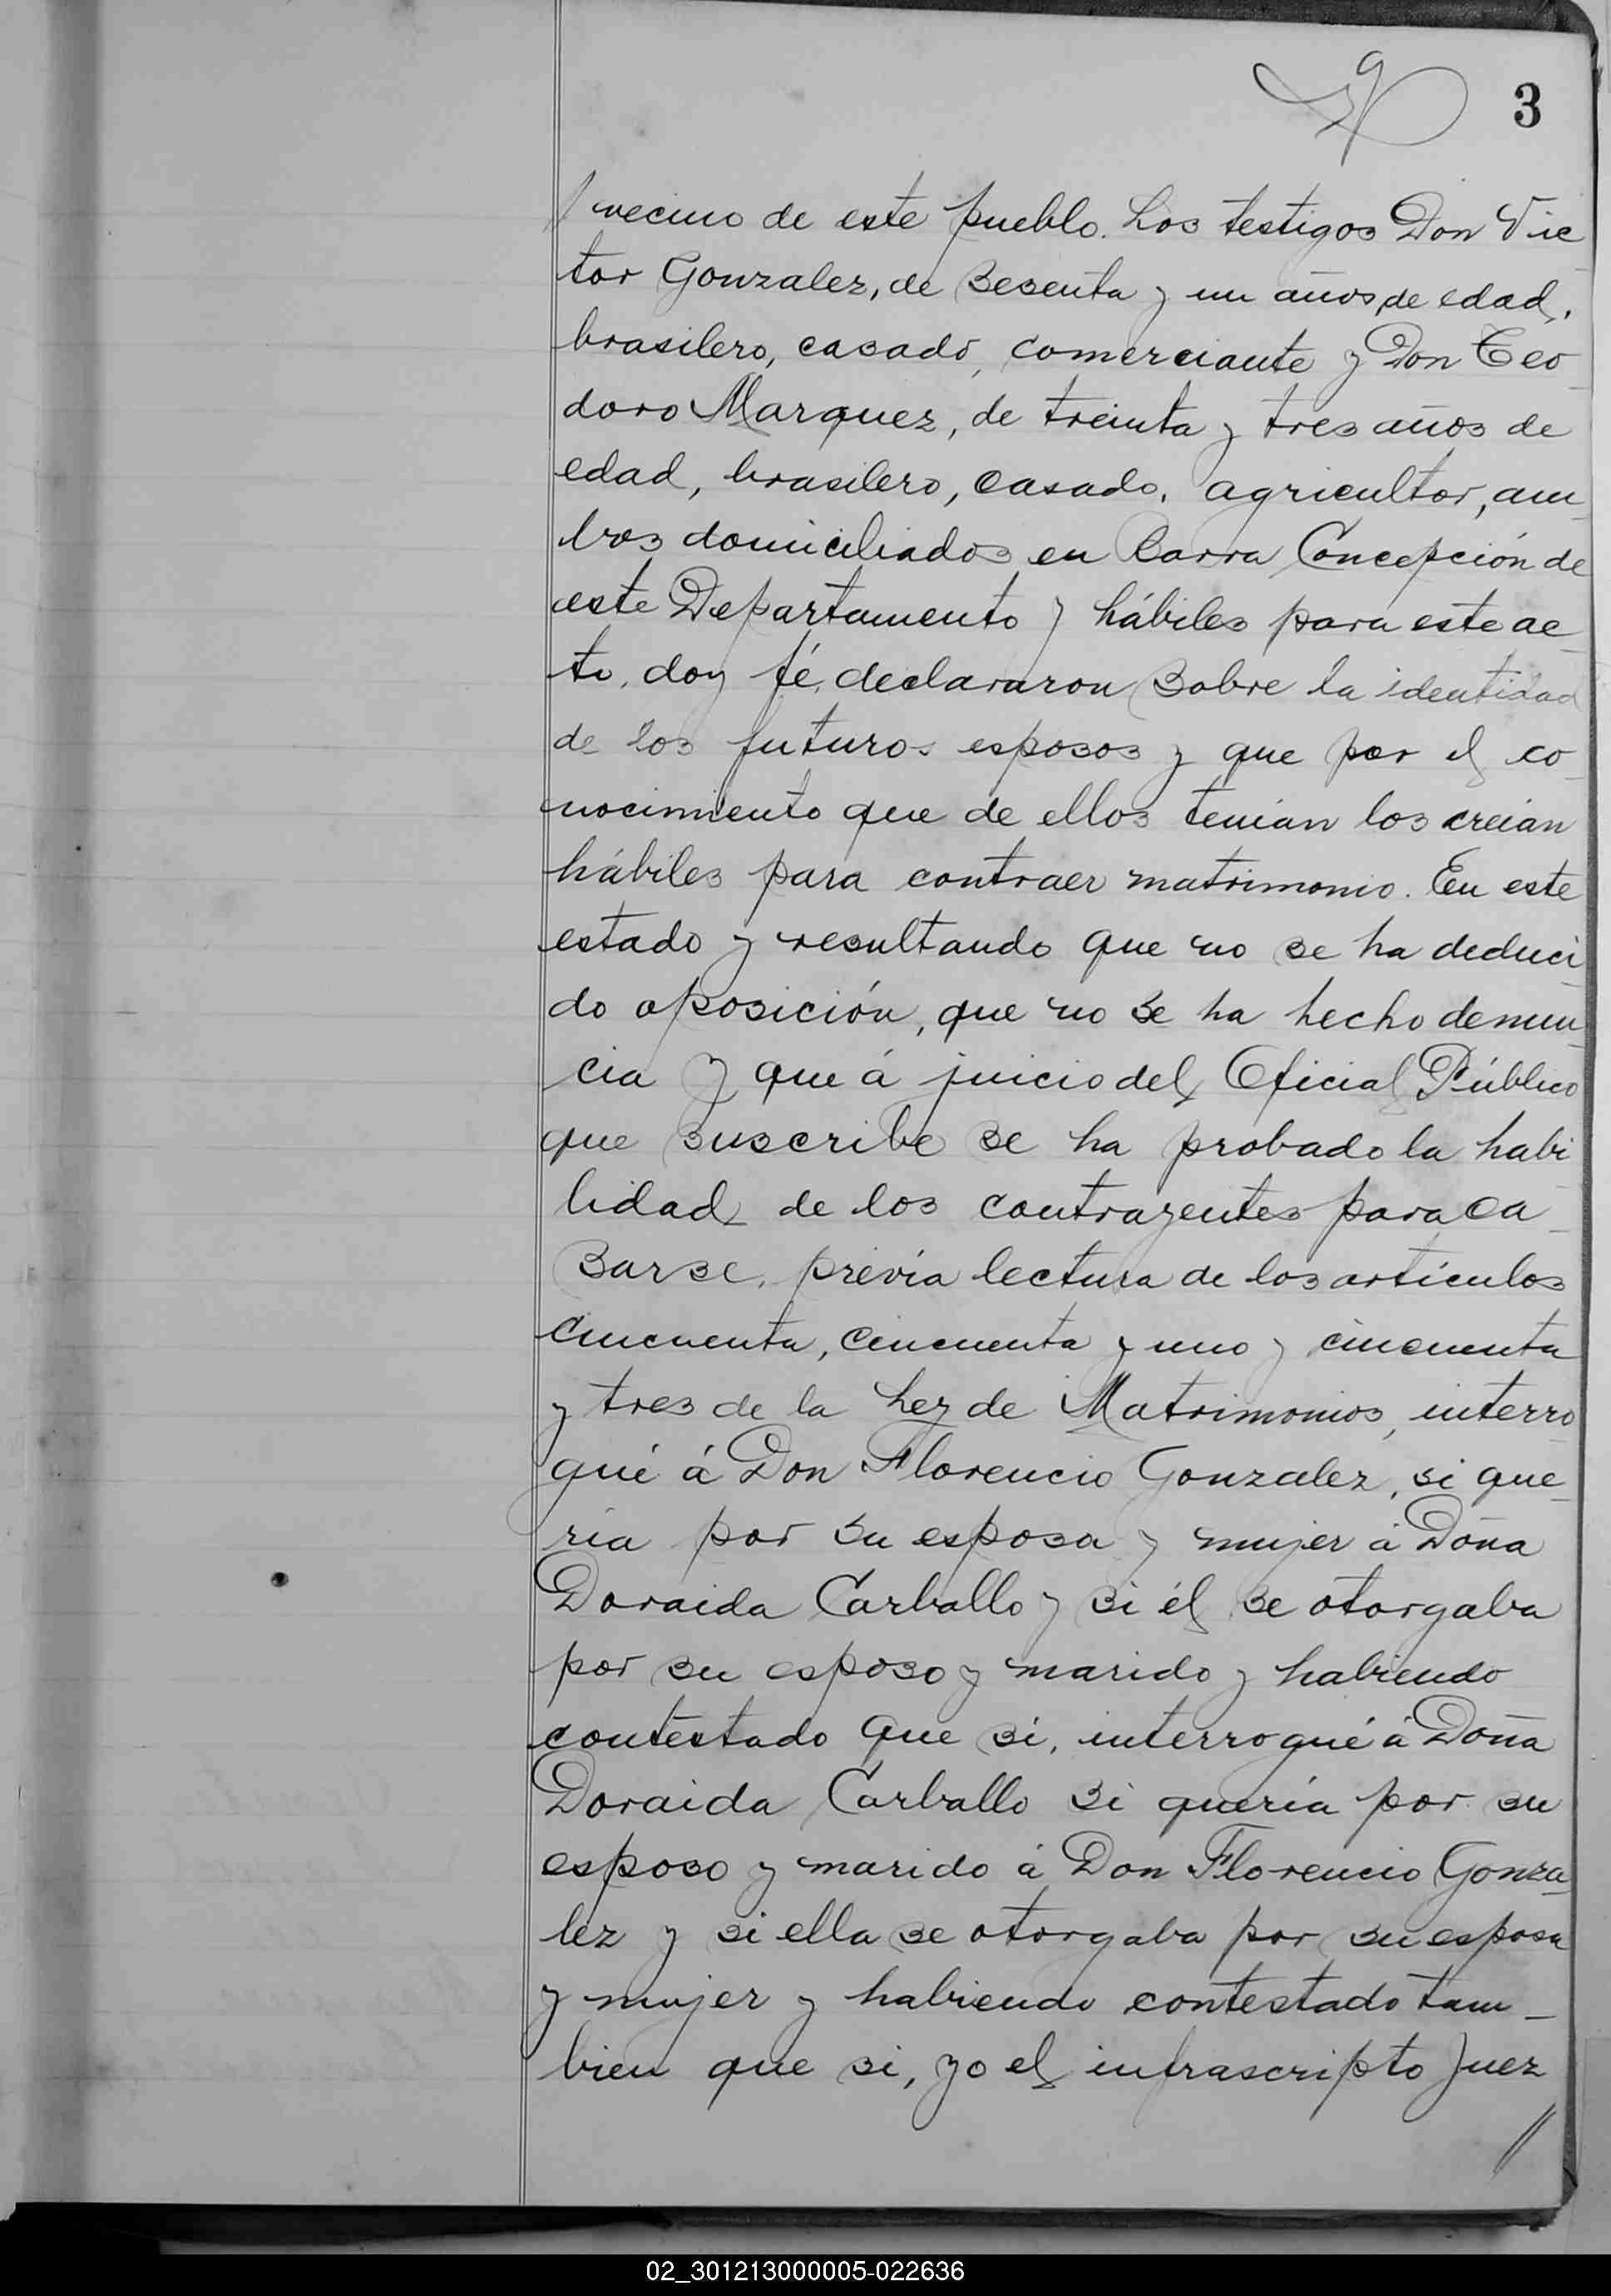 3
vecino de este pueblo. Los testigos Don Vic
tor Gonzalez, de sesenta y un años de edad,
brasilero, casado, comerciante y Don Teo
doro Marquez, de treinta y tres años de
edad, brasilero, casado, agricultor, am
bos domiciliados en Barra Concepción de
este Departamento y hábiles para este ac
to, doy fé, declararon sobre la identidad
de los futuros esposos y que por el co
nocimiento que de ellos tenían los creían
hábiles para contraer matrimonio. En este
estado y resultando que no se ha deduci
do oposición, que no se ha hecho denun
cia y que á juicio del Oficial Público
que suscribe se ha probado la habi
lidad de los contrayentes para ca
sarse, previa lectura de los artículos
cincuenta, cincuenta y uno y cincuenta
y tres de la Ley de Matrimonios, interro
gué á Don Florencio Gonzalez, si que
ría por su esposa y mujer á Doña
Doraida Carballo y si él se otorgaba
por su esposo y marido y habiendo
contestado que si, interrogué á Doña
Doraida Carballo si quería por su
esposo y marido á Don Florencio Gonza
lez y si ella se otorgaba por su esposa
y mujer y habiendo contestado tam
bien que si, yo el infrascripto Juez
//
02_301213000005-022636